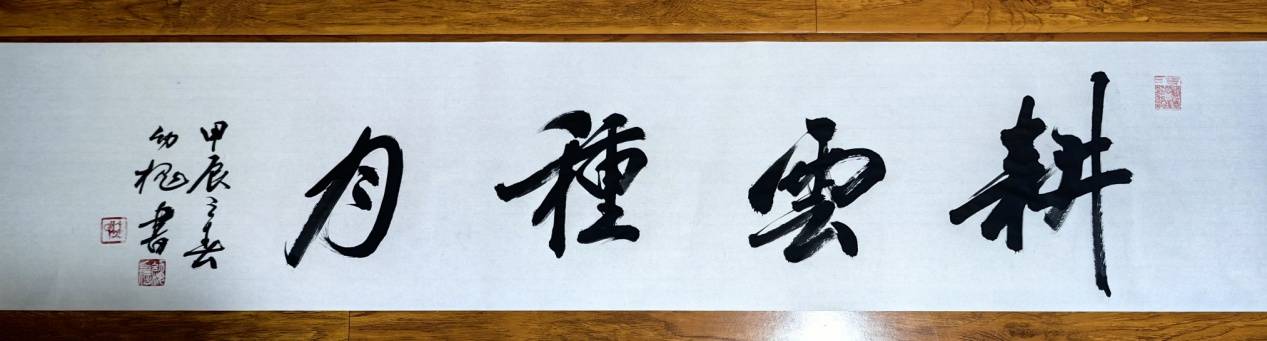 耕雲種月
甲辰之春
幼槐書